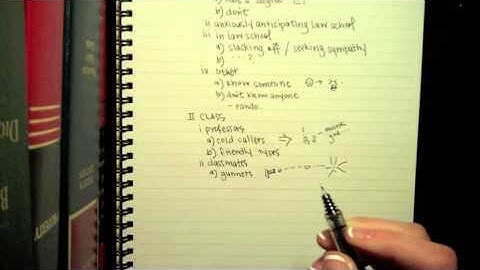 b) don't
ii anxiously anticipating law school
iii in law school
a) slacking off / seeking sympathy
b) ... ?
iv other
a) know someone
b) don't know anyone
- rando.
II CLASS
i professors
a) cold callers
b) friendly types
ii classmates
a) gunners